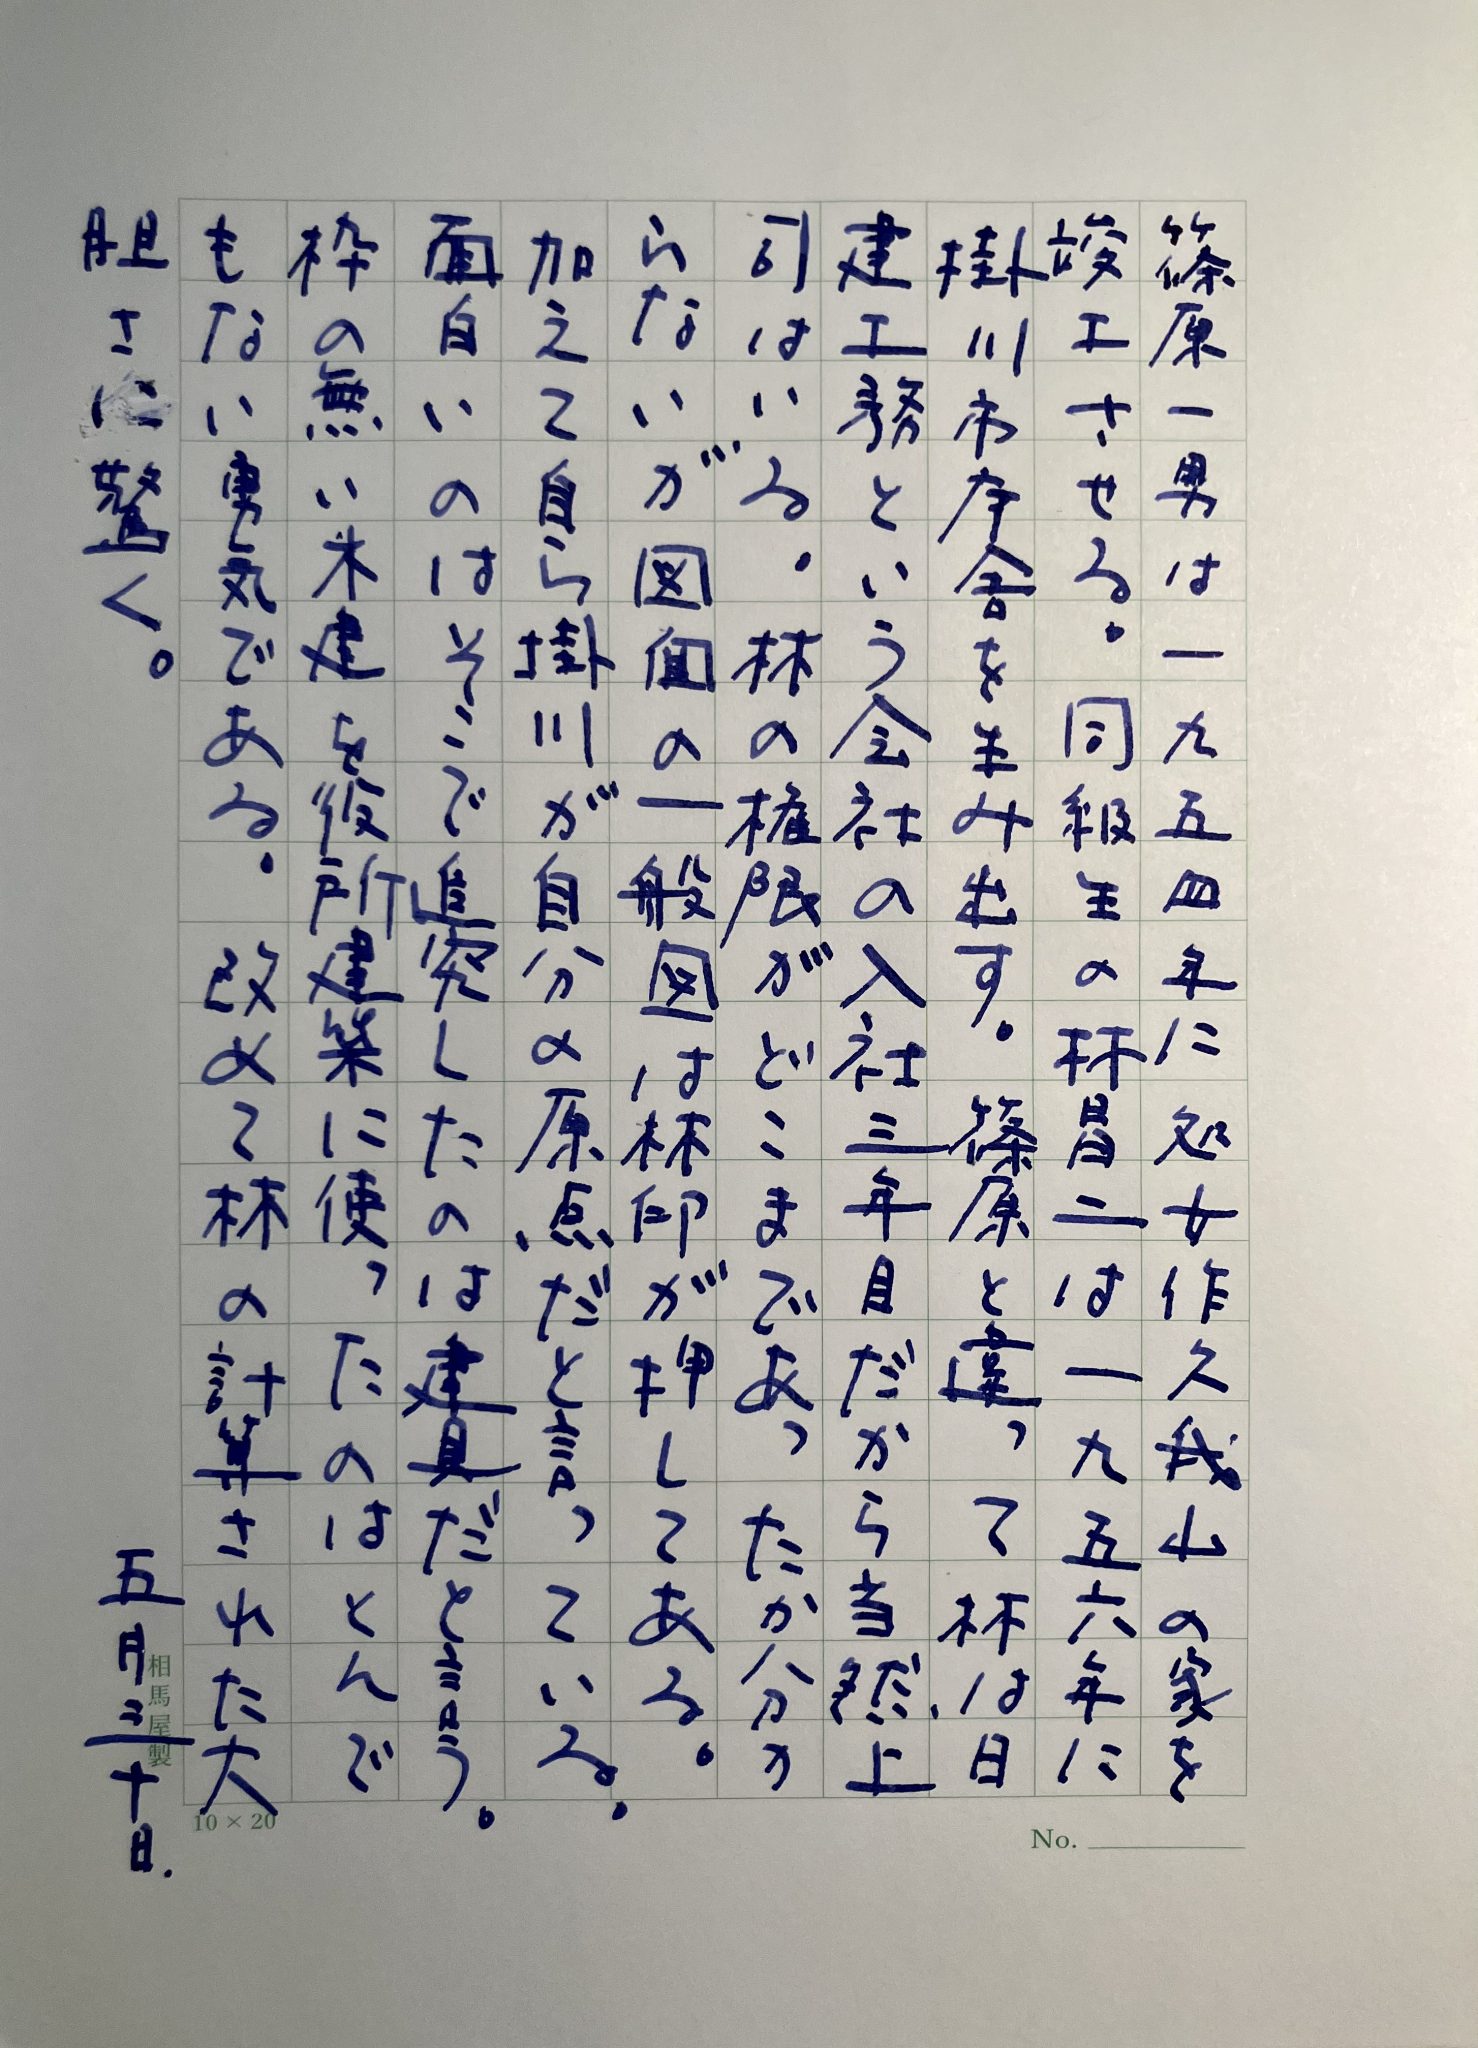 篠原一男は一九五四年に処女作久我山の家を
竣工させる。同級生の林昌二は一九五六年に
掛川市庁舎を生み出す。篠原と違って林は日
建工務という会社の入社三年目だから当然上
司はいる。林の権限がどこまであったか分か
らないが図面の一般図は林印が押してある。
加えて自ら掛川が自分の原点だと言っている。
面白いのはそこで追究したのは建具だと言う。
枠の無い木建を役所建築に使ったのはとんで
もない勇気である。改めて林の計算された大
胆さに驚く。
五月三十日.
相馬屋製
10×20
No.